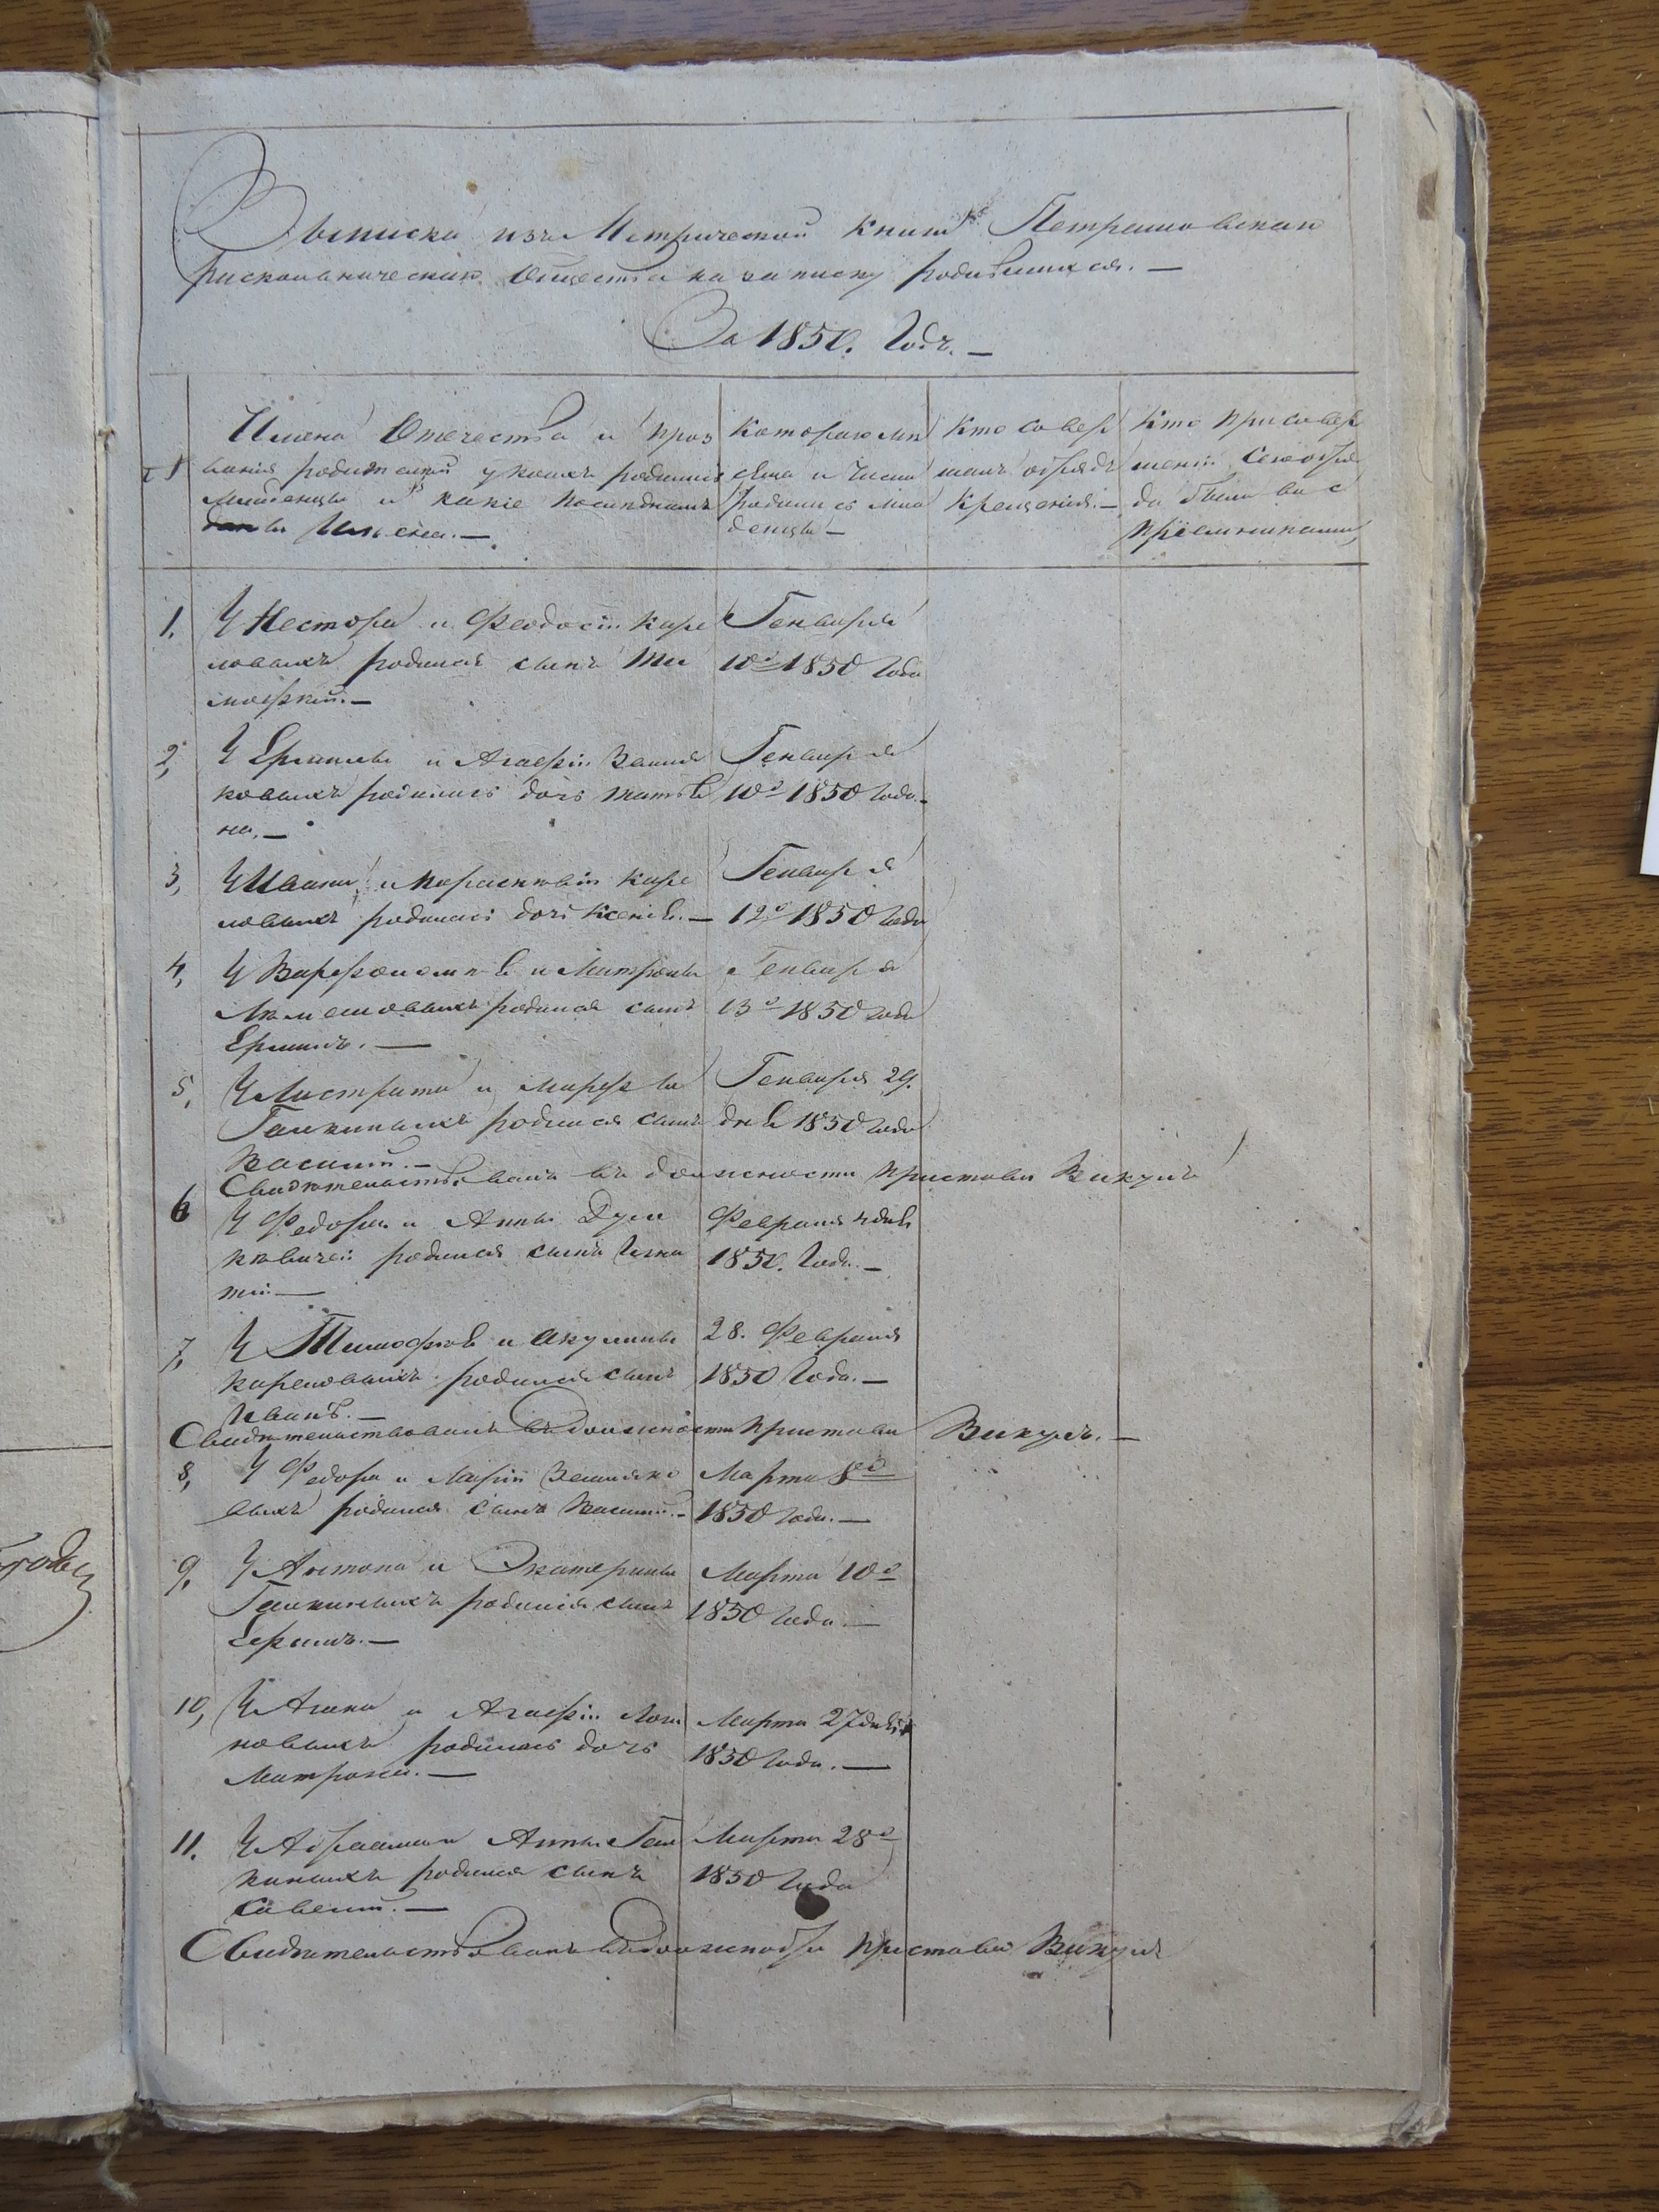 Выписка изъ Метрической книги Петрашовскаго
раскольническаго общества на записку родившихся. —
За 1850. Годъ. —
Имена Отечества и проз
вания родителей у коихъ родились
Младенцы и какие
имена. —
Котораго мѣ
сяца и числа
родились мла
денцы —
Кто совер
шалъ обрядъ
Крещения. —
Кто при совер
шении сего обря
да были вос
приемниками,
1. У Нестора и Феодосіи Кире
ловыхъ родился сынъ Ти
мофѣй. —
Генваря
10го 1850 Года
2, У и Агафіи Земля
ковыхъ родилась дочь Татья
на, —
Генваря
10го 1850 года. —
3, У Ивана и Парасковіи Кире
ловыхъ родилась дочь Ксенія. —
Генваря
12го 1850 Года
4, У Варфоломѣя и Матроны
родился сынъ
Ермилъ. —
Генваря
13го 1850 года
5, У и Марфы
Галкиныхъ родился сынъ
Василій. —
Генваря 29.
дня 1850 года
Свидѣтельствовалъ въ должности пристава Викулъ
6 У Федора и Анны
родился сынъ Игна
тій —
Февраля 4 дня
1850. Года. —
7, У Тимофѣя и Акулины
Киреловыхъ родился сынъ
Иванъ. —
28. Февраля
1850 Года. —
Свидѣтельствовалъ въ должности пристава Викулъ. —
8, У Федора и Маріи Земляко
выхъ родился сынъ Василій. —
Марта 8го
1850 года. —
9, У Антона и Екатерины
Галкиныхъ родился сынъ
—
Марта 10го
1850 года —
10, У и Агафіи
новыхъ родилась дочь
Матрона. —
Марта 27 дня
1850 Года. —
11. У Абраама и Анны Гал
киныхъ родился сынъ
Савелій. —
Марта 28го
1850 Года
Свидѣтельствовалъ въ должности пристава Викулъ